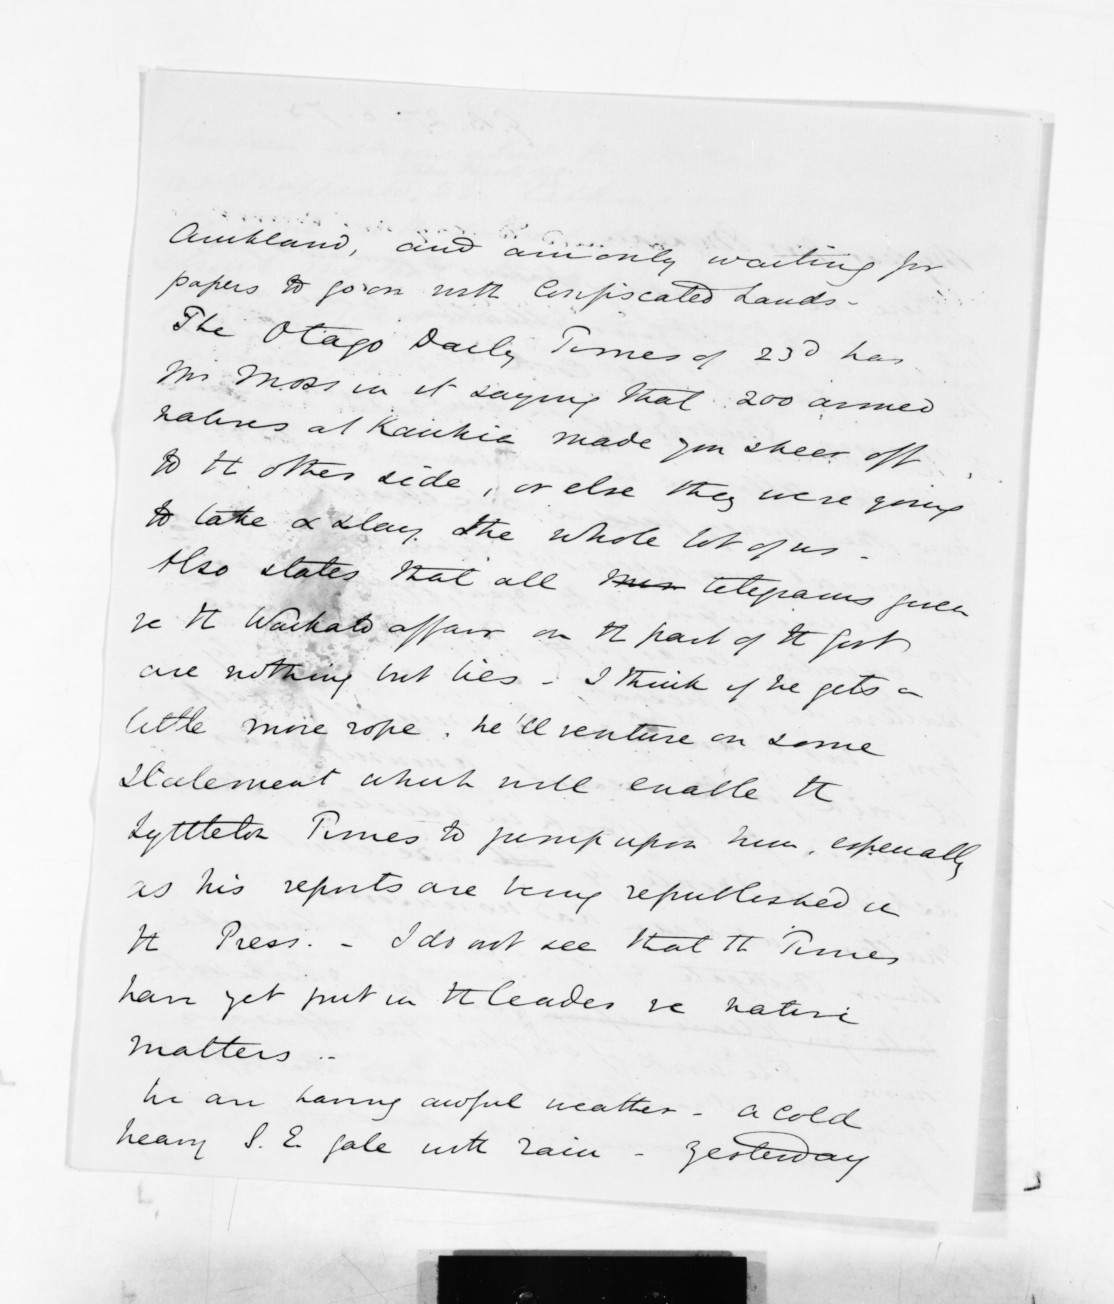 Auckland, and am only waiting for
papers to go on with Confiscated Lands -
The Otago Daily Times of 23d has
Mr Moss in it saying that 200 armed
natives at Kawhia made you sheer off
to tt other side, or else they were going
to take & slay the whole lot of us -
Also states that all telegrams given
re tt Waikato affair on tt part of tt Govt
are nothing but lies - I think if he gets a
little more rope, he'll venture on some
statement which will enable tt
Lyttleton Times to jump upon him, especially
as his reports are being republished in
tt Press. - I do not see that tt Times
have yet put in tt leader re native
matters -
We are having awful weather - a cold
heavy S. E gale with rain - Yesterday